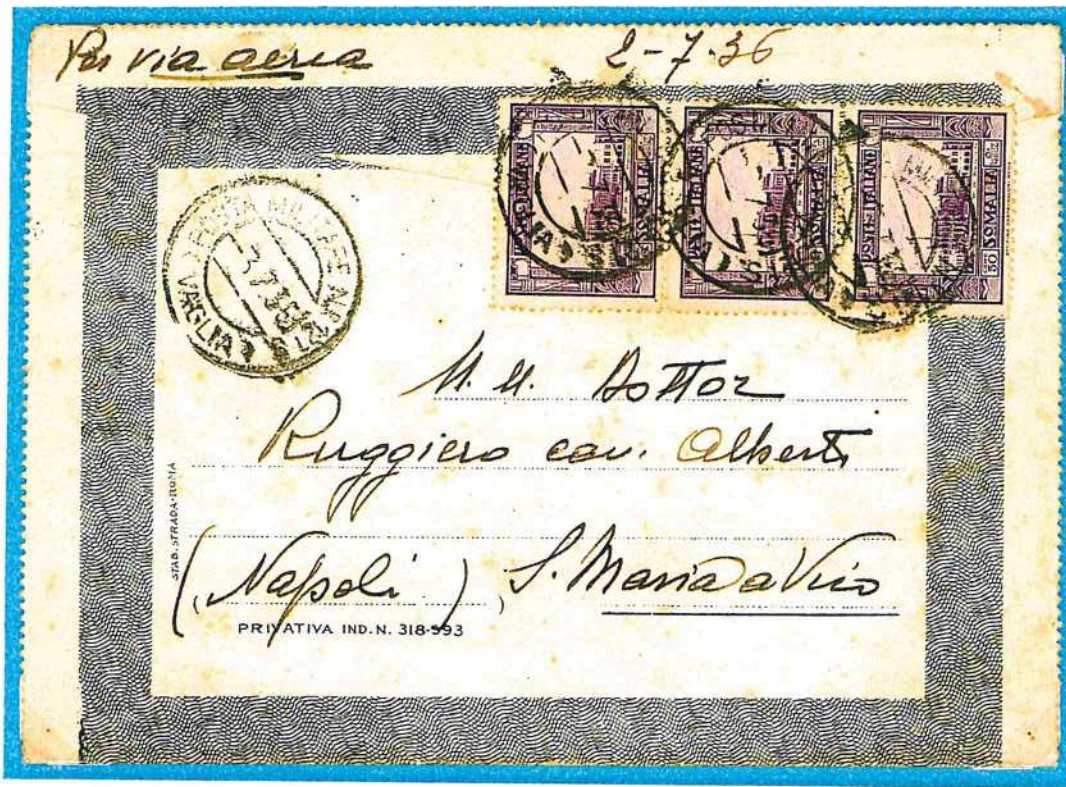 Per via aerea 2-7-36
POSTE ITALIANE SOMALIA
POSTE ITALIANE SOMALIA
POSTE ITALIANE 50 SOMALIA
POSTA MILITARE N. 121
3.7.36
VAGLIA
Dottor
Ruggiero cav. Alberto
(Napoli) S. Maria a Vico
STAB. STRADA-ROMA
PRIVATIVA IND. N. 318-593